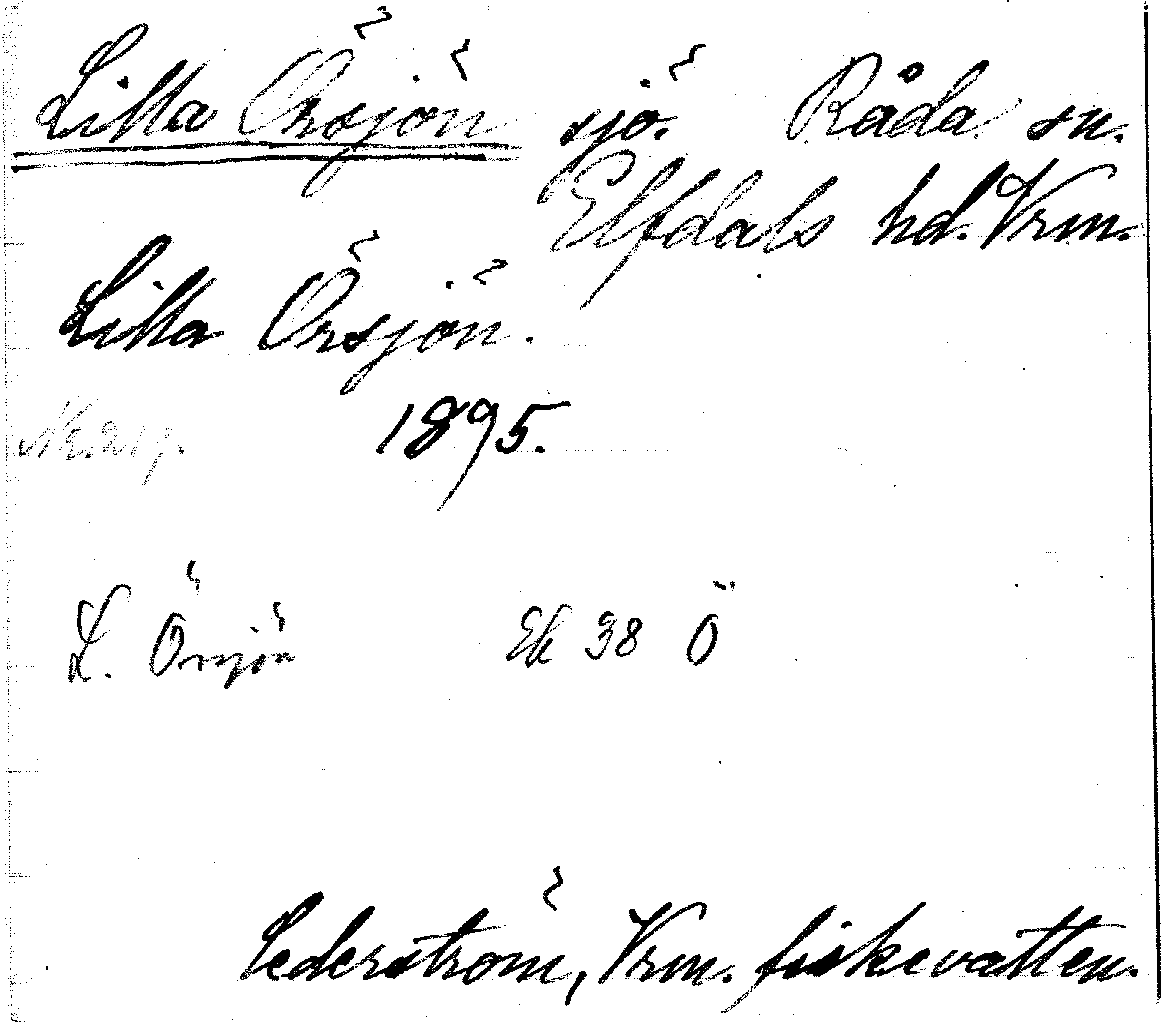 Lilla Örsjön sjö. Råda sn.
Elfdals hd. Vrm.
Lilla Örsjön.
1895.
L. Örsjön Ek 38 Ö
Cederström, Vrm. fiskevatten.